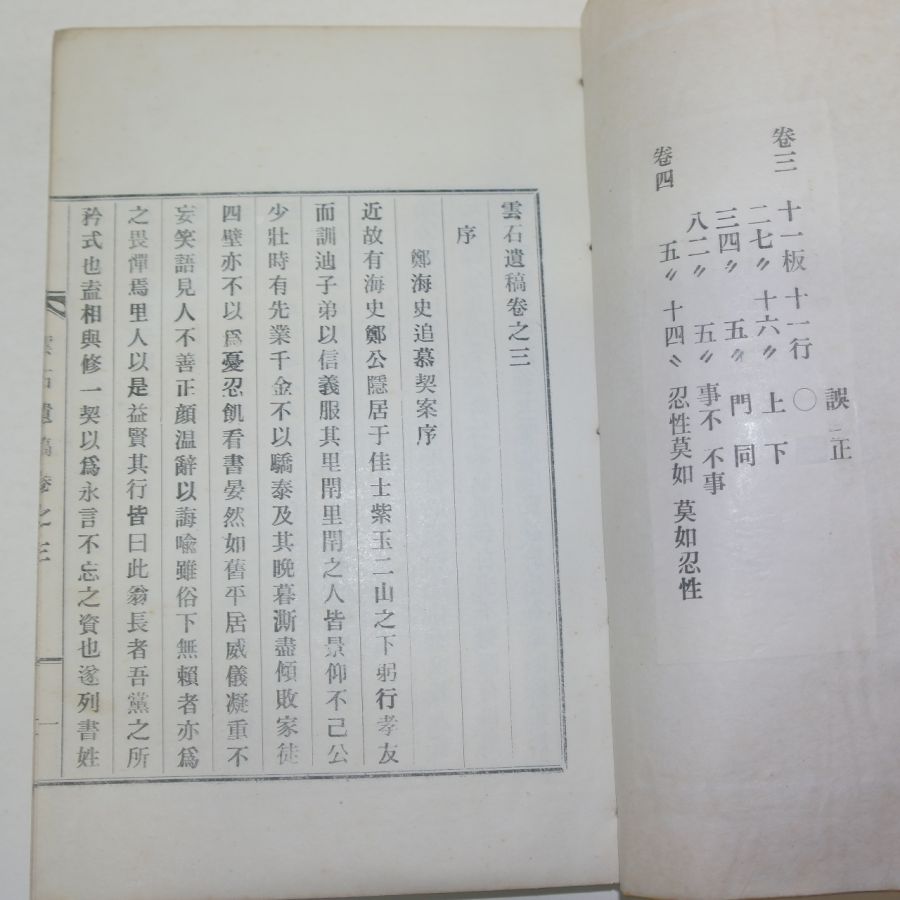 誤 正
卷三 十一板 十一行 〇
二七〃 十六〃 上 下
三四〃 五〃 門 同
八二〃 五〃 事不 不事
卷四 五〃 十四〃 忍性莫如 莫如忍性
雲石遺稿卷之三
序
鄭海史追慕契案序
近故有海史鄭公隱居于佳士紫玉二山之下躬行孝友
而訓迪子弟以信義服其里閈里閈之人皆景仰不已公
少壯時有先業千金不以驕泰及其晩暮澌盡傾敗家徒
四壁亦不以爲憂忍飢看書晏然如舊平居威儀凝重不
妄笑語見人不善正顔温辭以誨喩雖俗下無賴者亦爲
之畏憚焉里人以是益賢其行皆曰此翁長者吾黨之所
矜式也盍相與修一契以爲永言不忘之資也遂列書姓
雲石遺稿卷之三
一